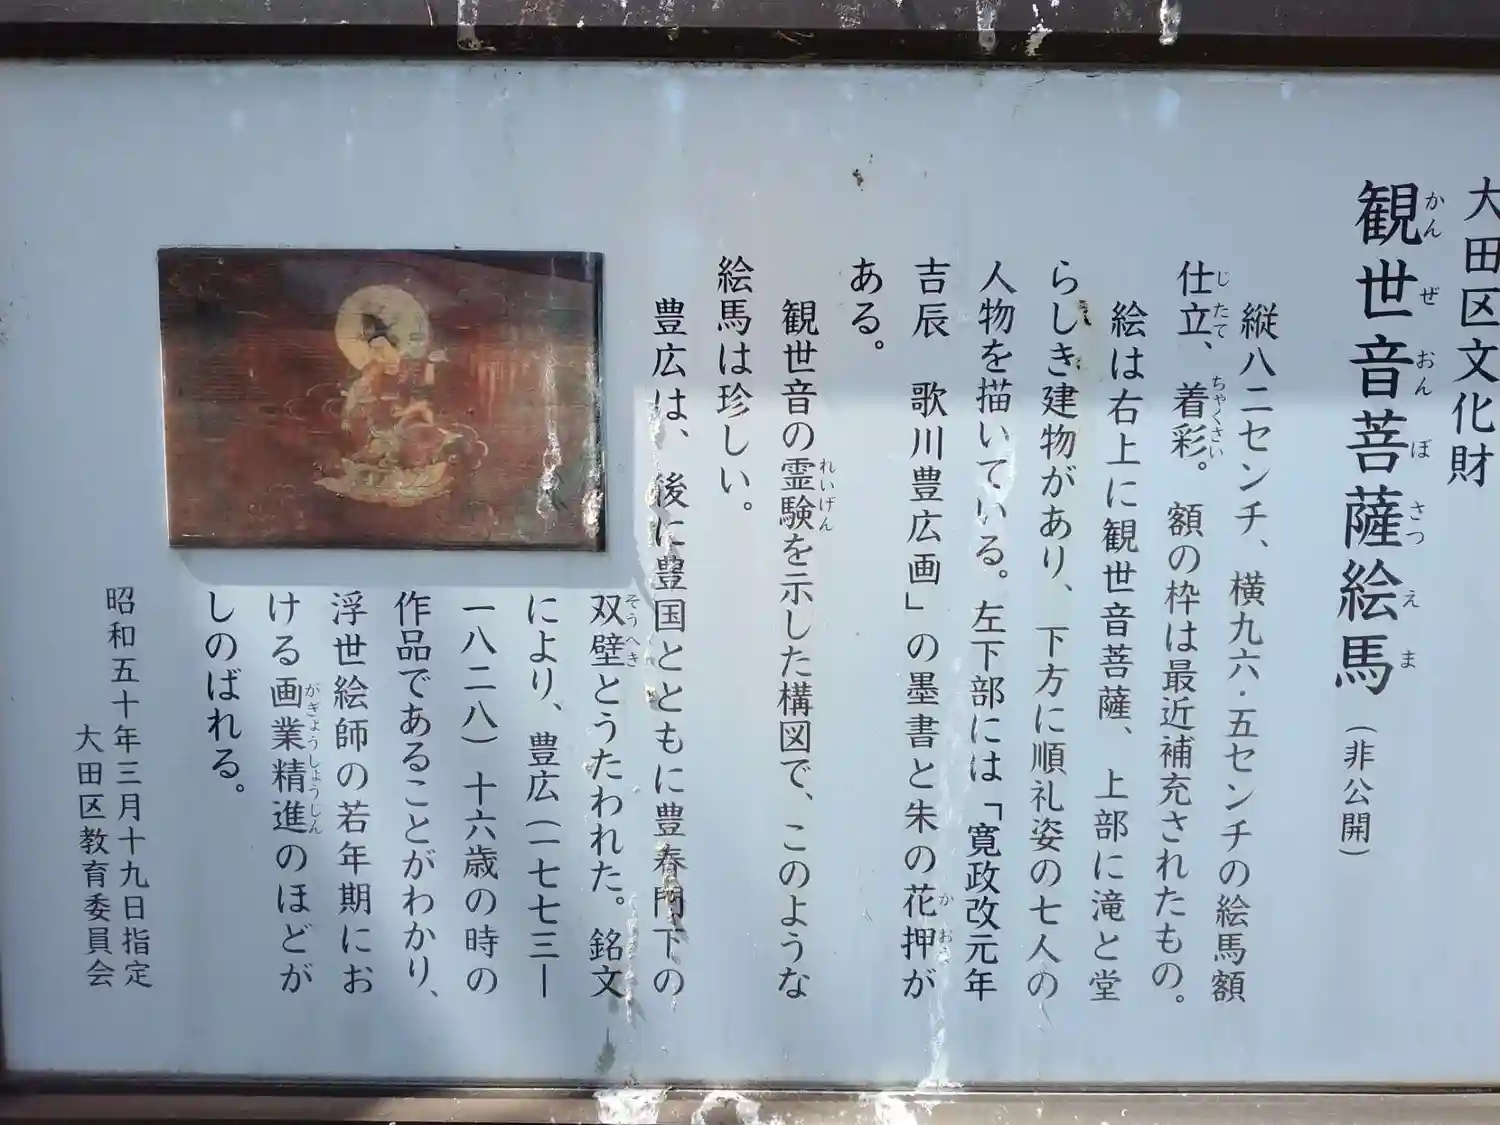 大田区文化財
観世音菩薩絵馬（非公開）
かんぜおんぼさつえま
縦八二センチ、横九六・五センチの絵馬額
仕立、着彩。額の枠は最近補充されたもの。
じたて ちゃくさい
絵は右上に観世音菩薩、上部に滝と堂
らしき建物があり、下方に順礼姿の七人の
人物を描いている。左下部には「寛政改元年
吉辰　歌川豊広画」の墨書と朱の花押が
かおう
ある。
観世音の霊験を示した構図で、このような
れいげん
絵馬は珍しい。
豊広は、後に豊国とともに豊春門下の
双壁とうたわれた。銘文
そうへき
により、豊広（一七七三ー
一八二八）十六歳の時の
作品であることがわかり、
浮世絵師の若年期にお
ける画業精進のほどが
がぎょうしょうじん
しのばれる。
昭和五十年三月十九日指定
大田区教育委員会